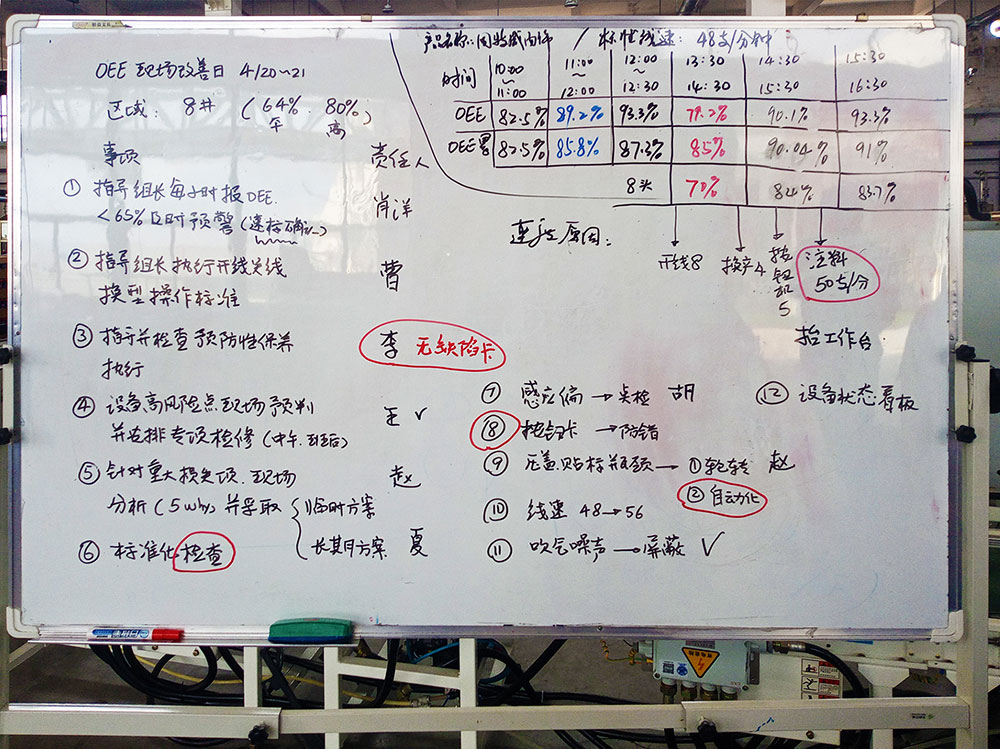 OEE 现场改善日 4/20~21
区域: 8# (64% 80%)
年 高
事项 责任人
① 指导组长每小时报OEE. 肖洋
<65%及时预警
② 指导组长执行开线关线 曹
换型操作标准
③ 指导并检查预防性保养 李 无缺陷卡
执行
④ 设备高风险点现场预判 王 √
并安排专项检修
⑤ 针对重大损失项.现场 赵
分析(5why)并采取 1)临时方案
长其月方案 夏
⑥ 标准化检查
产品名称: / 标准线速: 48支/分钟
时间 10:00~11:00 11:00~12:00 12:00~12:30 13:30 14:30 14:30 15:30 15:30 16:30
OEE 82.5% 89.2% 93.3% 79.2% 90.1% 93.3%
OEE累 82.5% 85.8% 87.3% 85% 90.04% 91%
8头 70% 84% 83.7%
原因:
开线8 换产4 按钮卡5 注料
50支/分
抬工作台
⑦ 感应偏→点检 胡
⑧ 按钮卡→防错
⑨ 压盖.贴标瓶颈→①轮转 赵
② 自动化
⑩ 线速 48→56
⑪ 吹气噪声→屏蔽 √
⑫ 设备状态看板